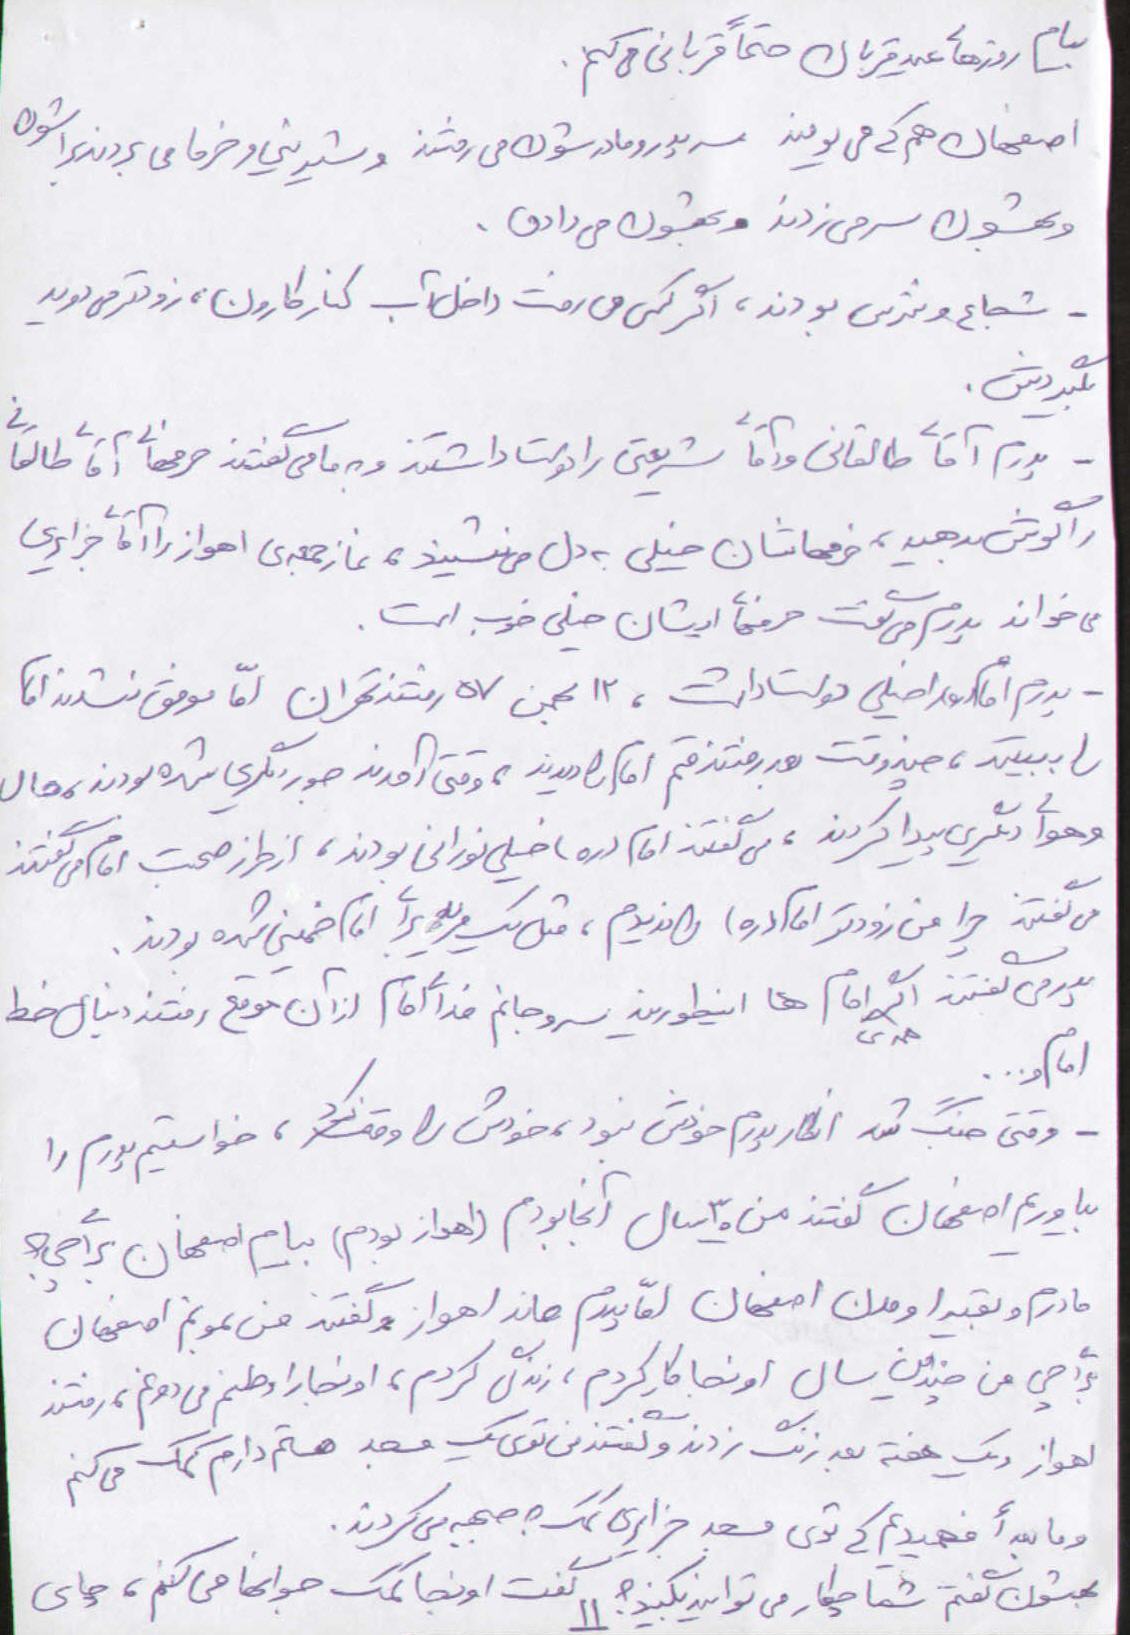 بیام روزهای عید قربان حتماً قربانی می‌کنم.
اصفهان هم که می‌یومدند سر پدر و مادرشون می‌رفتند و شیرینی و خرما می‌بردند براشون
و بهشون سر می‌زدند و بهشون می‌دادن.
- شجاع و نترس بودند، اگر کسی می‌رفت داخل آب کنار کارون، زودتر می‌دوید
بگیردش.
- پدرم آقای طالقانی و آقای شریعتی را دوست داشتند و به ما می‌گفتند حرفهای آقای طالقانی
را گوش بدهید، حرفهاشان خیلی به دل می‌نشیند، نماز جمعه‌ی اهواز را آقای جزایری
می‌خواند پدرم می‌گفت حرفهای ایشان خیلی خوب است.
- پدرم امام (ره) را خیلی دوست داشت، ۱۲ بهمن ۵۷ رفتند تهران امّا موفق نشدند امام
را ببینند، چند وقت بعد رفتند قم امام را دیدند، وقتی آمدند جور دیگری شده بودند، حال
و هوای دیگری پیدا کردند، می‌گفتند امام (ره) خیلی نورانی بودند، از طرز صحبت امام می‌گفتند
می‌گفتند چرا من زودتر امام (ره) را ندیدم، مثل یک برای امام خمینی شده بودند.
پدرم می‌گفتند اگر امام ها اینطورند سر و جانم فدای امام از آن موقع رفتند دنبال خط
امام و...
- وقتی جنگ شد انگار پدرم خودش نبود، خودش را وقف کرد، خواستیم پدرم را
بیاوریم اصفهان گفتند من ۳۵ سال آنجا بودم (اهواز بودم) بیام اصفهان برای چی؟
مادرم و بقیه اومدن اصفهان امّا پدرم ماند اهواز و گفتند من بمونم اصفهان
برای چی من چندین سال اونجا کار کردم، زندگی کردم، اونجا را وطنم می‌دونم، رفتند
اهواز و یک هفته بعد زنگ زدند و گفتند من توی یک مسجد هستم دارم کمک می‌کنم
و ما بعداً فهمیدیم که توی مسجد جزایری کمک به جبهه می‌کردند.
بهشون گفتم شما چکار می‌توانید بکنید؟ گفت اونجا کمک جوانها می‌کنم، چای
۱۱